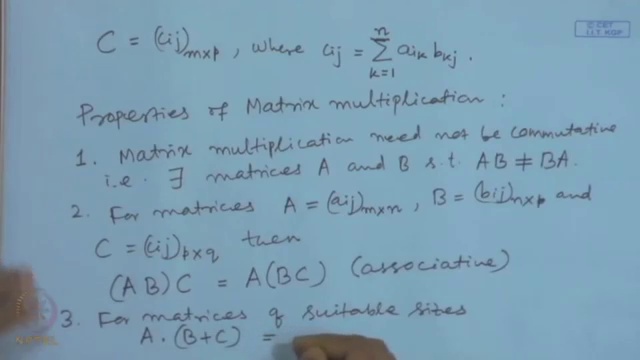 © CET
I.I.T. KGP
C = (cij)m×p, where cij = n∑k=1 aik bkj.
Properties of Matrix multiplication :
1. Matrix multiplication need not be commutative
i.e. ∃ matrices A and B s.t. AB ≠ BA.
2. For matrices A = (aij)m×n, B = (bij)n×p and
C = (cij)p×q then
(AB)C = A(BC) (associative)
3. For matrices of suitable sizes
A·(B+C) =